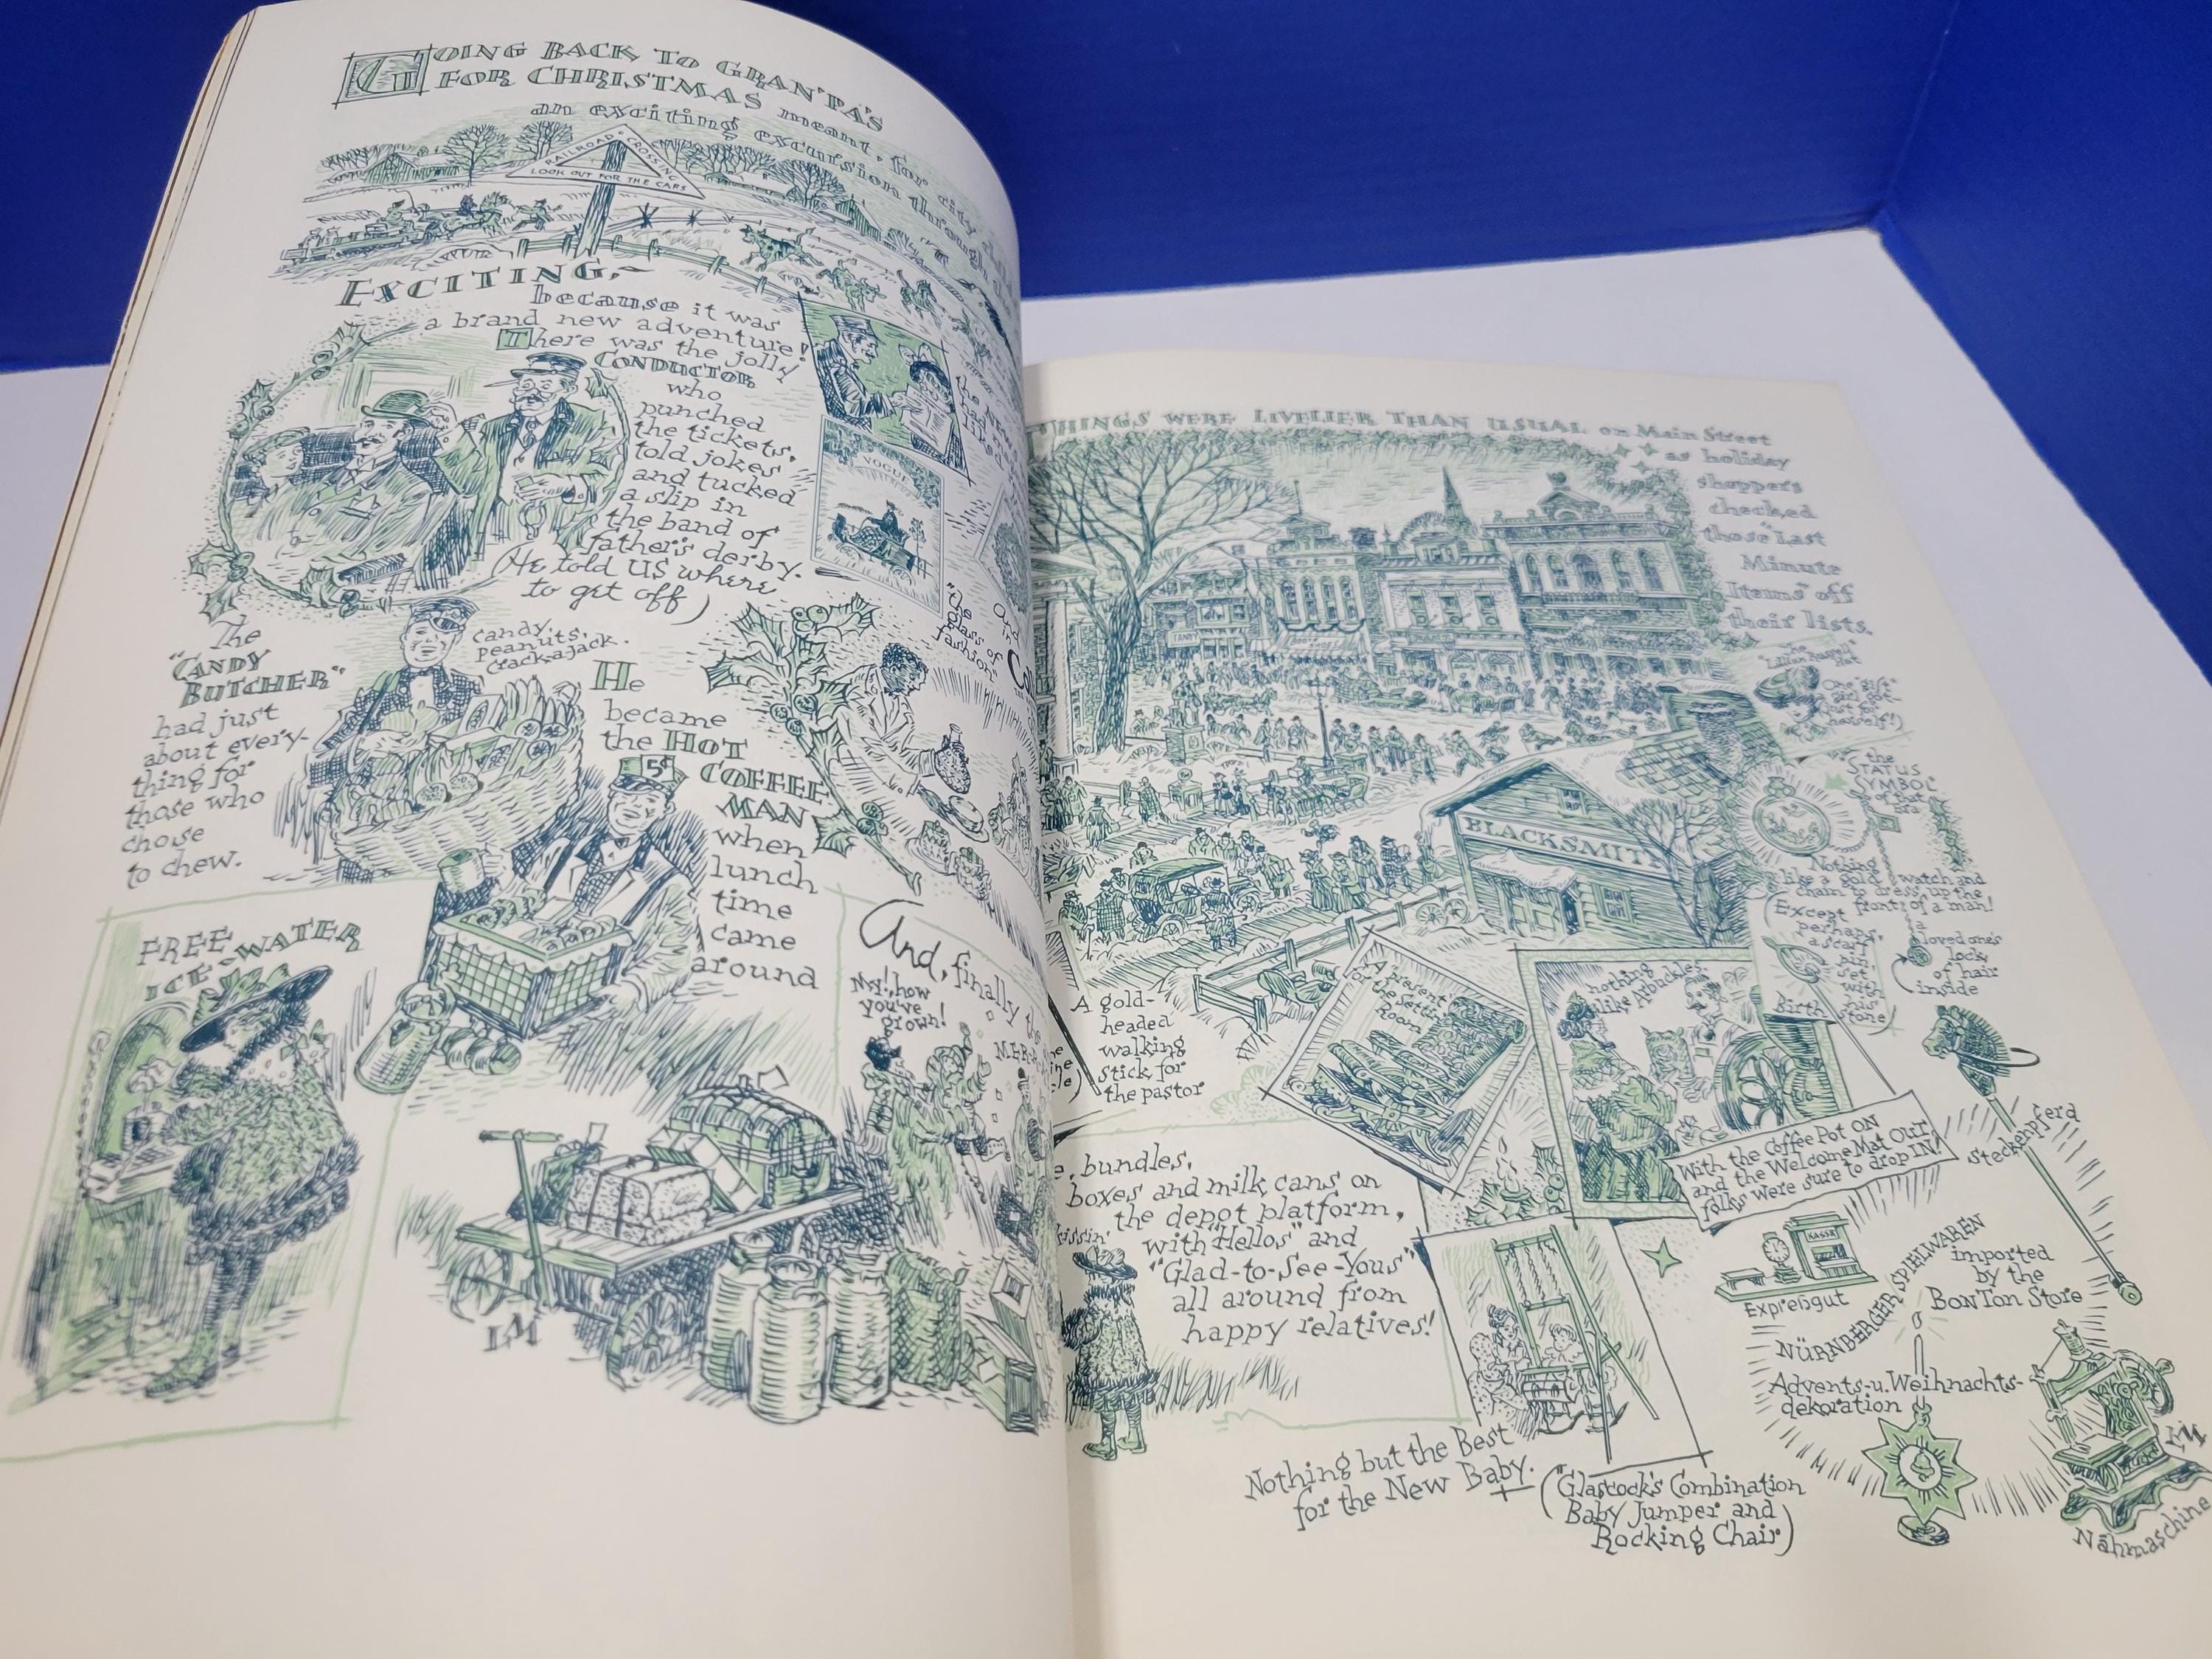 GOING BACK TO GRAN'PA'S
FOR CHRISTMAS meant, for city
an exciting excursion through
RAILROAD CROSSING
LOOK OUT FOR THE CARS
EXCITING,~
because it was
a brand new adventure!
There was the jolly
CONDUCTOR
who
punched
the tickets,
told jokes
and tucked
a slip in
the band of
father's derby.
(He told US where
to get off)
VOGUE
"The
glass of
fashion"
And
in
The
"CANDY
BUTCHER"
had just
about every-
thing for
those who
chose
to chew.
candy,
peanits,
crackajack.
He
became
the HOT
COFFEE
MAN
when
lunch
time
came
around
5¢
FREE
ICE-WATER
And, finally the
My!, how
you've
grown!
LM
THINGS WERE LIVELIER THAN USUAL on Main Street
as holiday
shoppers
checked
those "Last
Minute
Items" off
their lists.
The
"Lillian Russell"
Hat
One "gift"
just for
herself!)
BLACKSMITH
the
"STATUS
SYMBOL"
of that
era
Nothing
like a gold watch and
chain to dress up the
front of a man!
(Except
perhaps,
a scarf
pin,
set
with
his
birth
stone)
a
loved one's
lock
of hair
inside
A gold-
headed
walking
stick for
the pastor
A present
for the Setting
Room
nothing
like Arbuckles
With the Coffee Pot ON
and the Welcome Mat OUT,
folks were sure to drop IN!
Steckenpferd
e, bundles,
boxes and milk cans on
the depot platform,
with "Hellos" and
"Glad-to-See-Yous"
all around from
happy relatives!
KASSE
Expreßgut
NÜRNBERGER SPIELWAREN
imported
by the
BonTon Store
Advents-u.Weihnachts-
dekoration
LM
Nähmaschine
Nothing but the Best
for the New Baby.
("Glascock's Combination
Baby Jumper and
Rocking Chair)